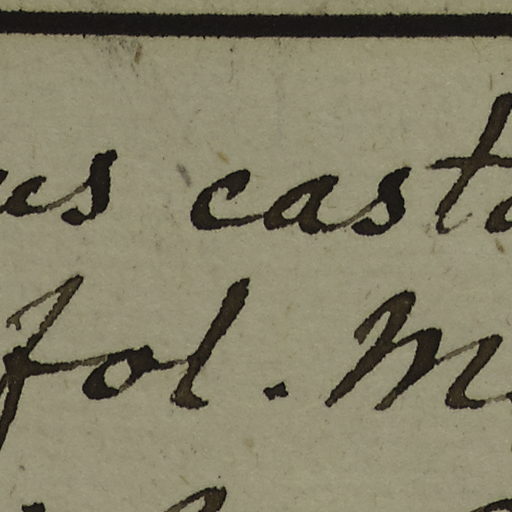 us casta
fol. M